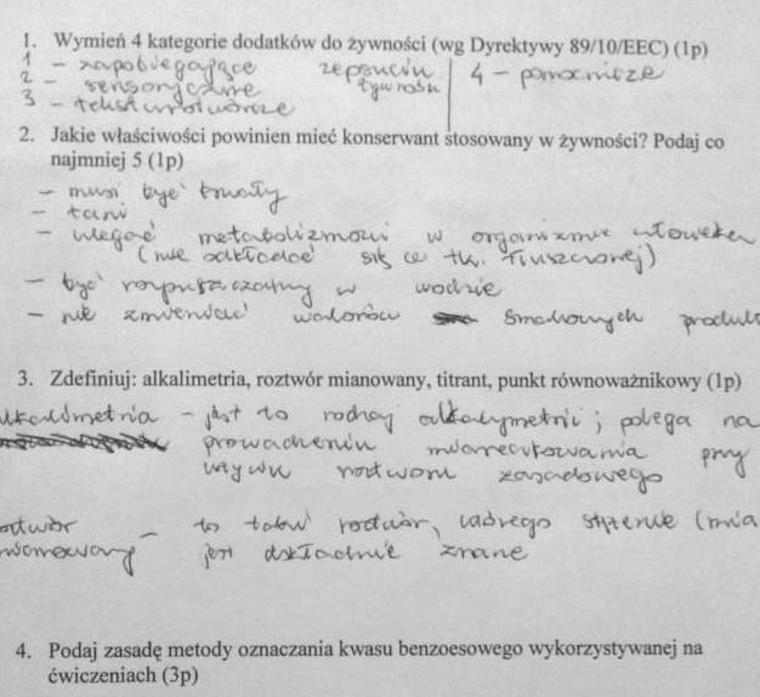 1. Wymień 4 kategorie dodatków do żywności (wg Dyrektywy 89/10/EEC) (1p)
1 - zapobiegające zepsuciu żywności
2 - sensoryczne
3 - teksturotwórcze
4 - pomocnicze
2. Jakie właściwości powinien mieć konserwant stosowany w żywności? Podaj co
najmniej 5 (1p)
- musi być trwały
- tani
- ulegać metabolizmowi w organizmie człowieka
(nie odkładać się w tk. tłuszczowej)
- być rozpuszczalny w wodzie
- nie zmieniać walorów smakowych produkt
3. Zdefiniuj: alkalimetria, roztwór mianowany, titrant, punkt równoważnikowy (1p)
alkalimetria - jest to rodzaj alkalymetrii; polega na
prowadzeniu miareczkowania przy
użyciu roztworu zasadowego
roztwór - to taki roztwór, którego stężenie (mia
mianowany jest dokładnie znane
4. Podaj zasadę metody oznaczania kwasu benzoesowego wykorzystywanej na
ćwiczeniach (3p)